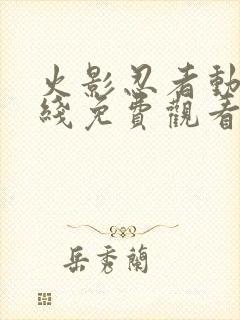 火影忍者動
綫免費觀看
岳秀蘭